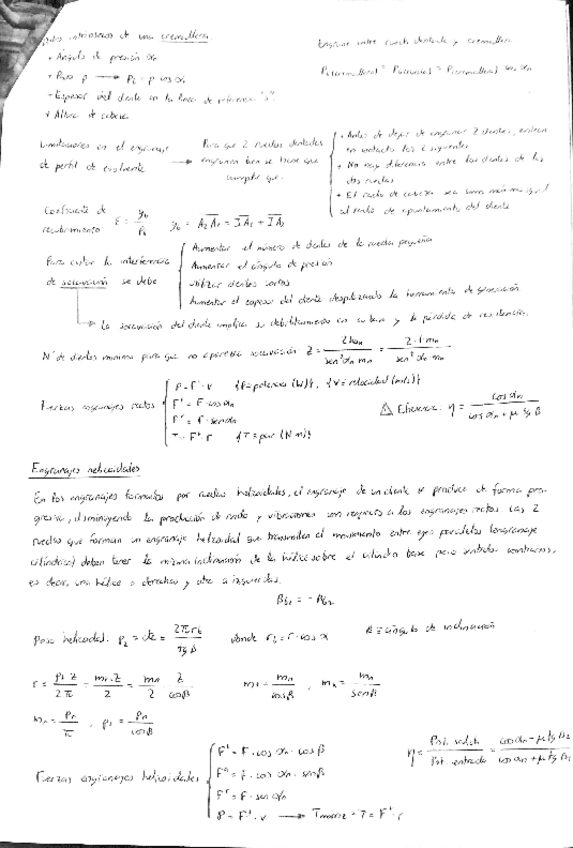 Datos intrínsecos de una cremallera
Engrane entre rueda dentada y cremallera
• Ángulo de presión αn
P(cremallera) = P(rueda) = P(cremallera) cos αn
• Paso p → Pb = p cos αn
- Espesor del diente en la línea de referencia "s"
• Altura de cabeza
Limitaciones en el engranaje de perfil de evolvente → Para que 2 ruedas dentadas engranen bien se tiene que cumplir que:
• Antes de dejar de engranar 2 dientes, entren en contacto los 2 siguientes
• No haya diferencia entre los dientes de las dos ruedas
• El radio de cabeza sea como máximo igual al radio de apuntamiento del diente
Coeficiente de recubrimiento ε = yb / Pb yb = A2A1 = IA1 + IA2
Para evitar la interferencia de socavación se debe
Aumentar el número de dientes de la rueda pequeña
Aumentar el ángulo de presión
Utilizar dientes cortos
Aumentar el espesor del diente desplazando la herramienta de generación
→ La socavación del diente implica su debilitamiento en su base y la pérdida de resistencia.
Nº de dientes mínimo para que no aparezca socavación Z = 2han / sen² αn mn = 2·1 mn / sen² αn mn
Fuerzas engranajes rectos
P = F·v {P = potencia (W)}, {v = velocidad (m/s)}
F^t = F·cos αn
F^r = F·sen αn
T = F^t·r {T = par (N m)}
⚠ Eficiencia: η = cos αn / cos αn + μ tg β
Engranajes helicoidales
En los engranajes formados por ruedas helicoidales, el engranaje de un diente se produce de forma pro-
gresiva, disminuyendo la producción de ruido y vibraciones con respecto a los engranajes rectos. Las 2
ruedas que forman un engranaje helicoidal que transmiten el movimiento entre ejes paralelos (engranaje
cilíndrico) deben tener la misma inclinación de la hélice sobre el cilindro base pero sentidos contrarios,
es decir, una hélice a derechas y otra a izquierdas.
βb1 = -βb2
Paso helicoidal: pz = 2πrb / tg β donde rb = r·cos α β ≡ ángulo de inclinación
r = pt z / 2π = mt·z / 2 = mn / 2 z / cos β mt = mn / cos β , mx = mn / sen β
mn = pn / π , pt = pn / cos β
Fuerzas engranajes helicoidales
F^t = F·cos αn·cos β
F^a = F·cos αn·sen β
F^r = F·sen αn
P = F^t·v → Tmotriz = T = F^t·r
η = Pot. salida / Pot. entrada = cos αn - μ tg β2 / cos αn + μ tg β1